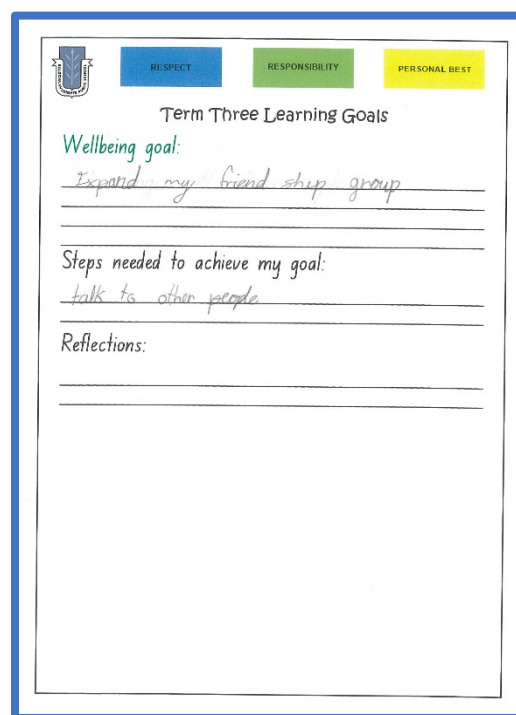 RESPECT
RESPONSIBILITY
PERSONAL BEST
Term Three Learning Goals
Wellbeing goal:
Expand my friend ship group
Steps needed to achieve my goal:
talk to other people
Reflections: